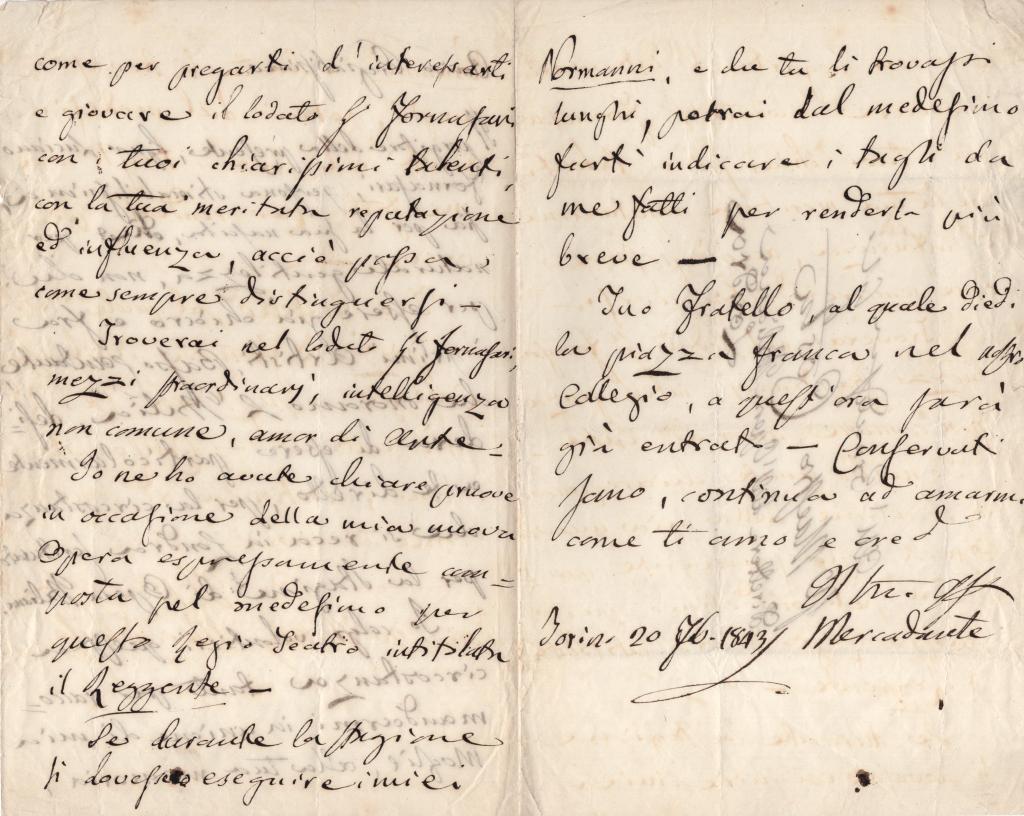 come per pregarti d'interessarti
e giovare il lodato Sr Fornasari
con i tuoi chiarissimi talenti,
con la tua meritata reputazione
ed influenza, acciò possa
come sempre distinguersi —
Troverai nel lodato Sr Fornasari,
mezzi straordinarj, intelligenza
non comune, amor di Arte =
Io ne ho avute chiare pruove
in occasione della mia nuova
Opera espressamente com=
posta pel medesimo per
questo Regio Teatro intitolata
il Reggente —
Se durante la stagione
si dovessero eseguire i miei
Normanni, e che tu li trovassi
lunghi, potrai dal medesimo
farti indicare i tagli da
me fatti per renderla più
breve —
Tuo Fratello, al quale diedi
la piazza franca nel nostro
Collegio, a quest'ora sarà
già entrato — Conservati
sano, continua ad amarmi
come ti amo e cred
Il tuo aff
Torino 20 1843 Mercadante